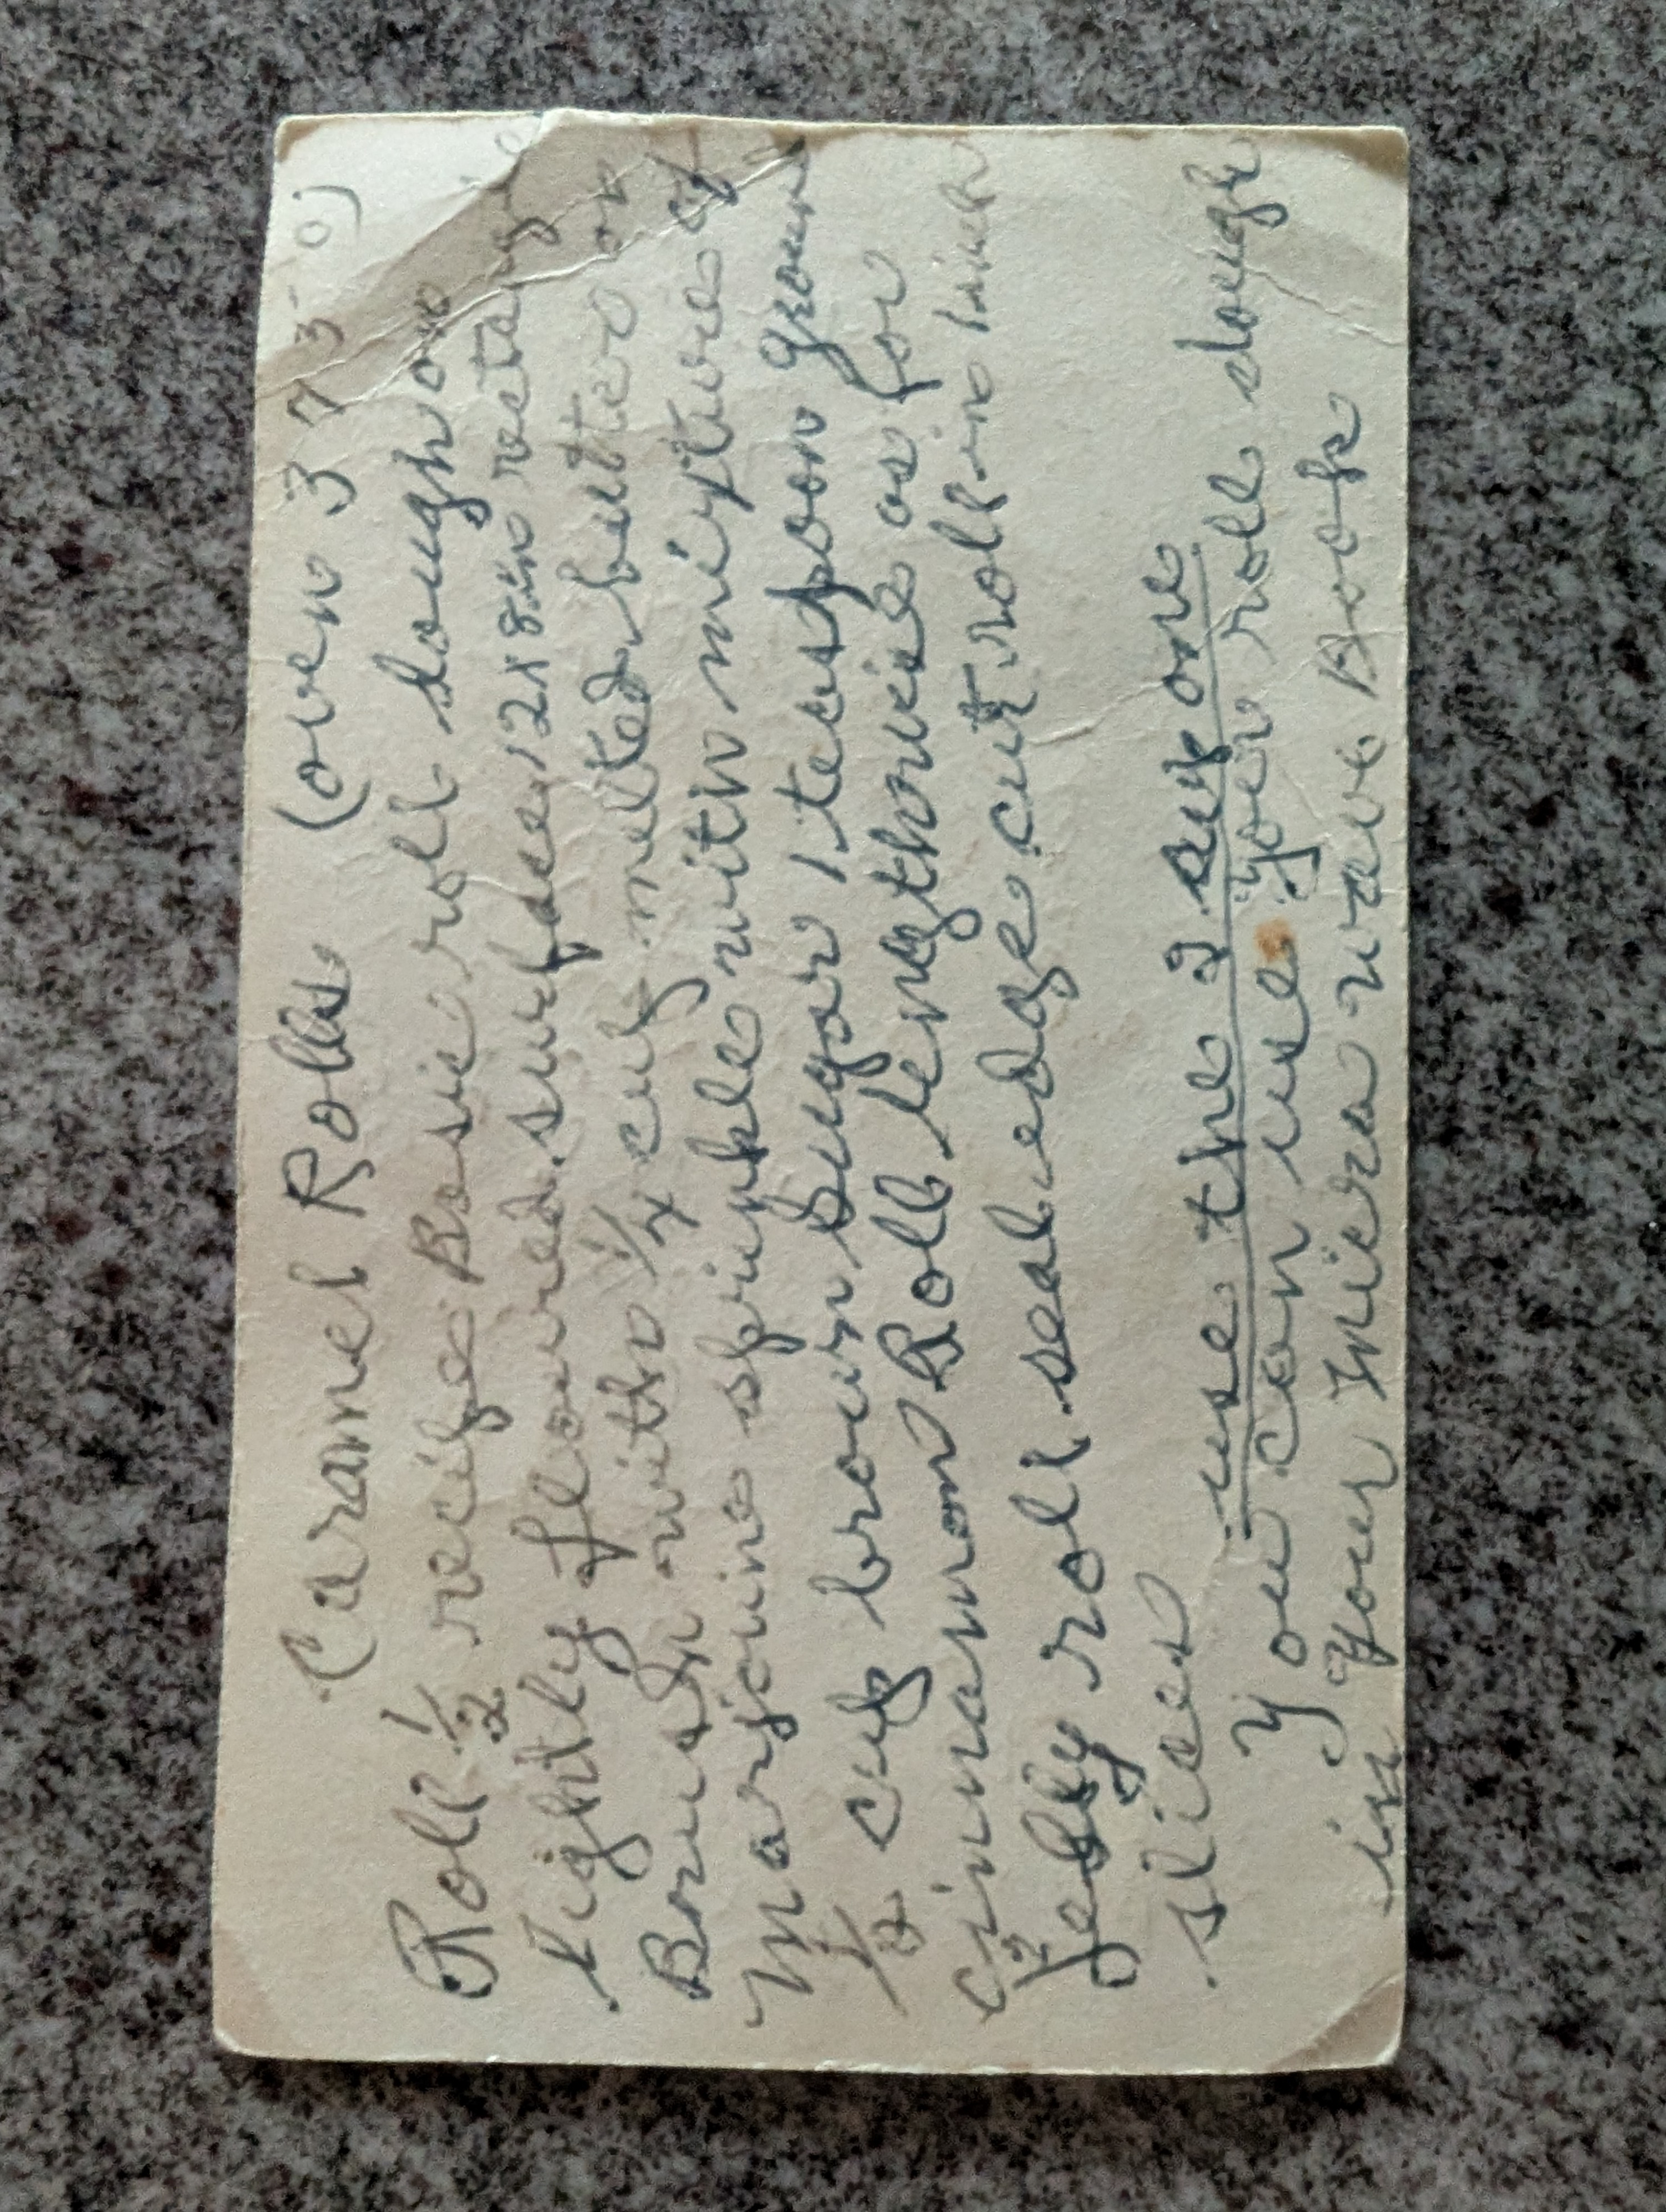 Caramel Rolls (oven 375°)
Roll 1/2 recipe Basic roll dough on
lightly floured surface, 12x8 in
Brush with 1/4 cup melted butter or
Marjoine sprinkle with mixture of
1/2 cup brown Sugar 1 teaspoon groun
cinnamon Roll lengthwise as for
jelly roll seal edge cut roll in 1 inch
slices
use the I sug one
You can use your roll dough
in your Micra wave Book